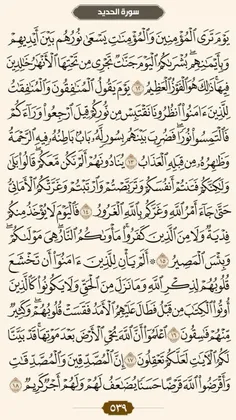 سورة الحديد
يَوْمَ تَرَى ٱلْمُؤْمِنِينَ وَٱلْمُؤْمِنَٰتِ يَسْعَىٰ نُورُهُم بَيْنَ أَيْدِيهِمْ
وَبِأَيْمَٰنِهِم بُشْرَىٰكُمُ ٱلْيَوْمَ جَنَّٰتٌ تَجْرِى مِن تَحْتِهَا ٱلْأَنْهَٰرُ خَٰلِدِينَ
فِيهَا ذَٰلِكَ هُوَ ٱلْفَوْزُ ٱلْعَظِيمُ ١٢ يَوْمَ يَقُولُ ٱلْمُنَٰفِقُونَ وَٱلْمُنَٰفِقَٰتُ
لِلَّذِينَ ءَامَنُوا۟ ٱنظُرُونَا نَقْتَبِسْ مِن نُّورِكُمْ قِيلَ ٱرْجِعُوا۟ وَرَآءَكُمْ
فَٱلْتَمِسُوا۟ نُورًا فَضُرِبَ بَيْنَهُم بِسُورٍ لَّهُۥ بَابٌۢ بَاطِنُهُۥ فِيهِ ٱلرَّحْمَةُ
وَظَٰهِرُهُۥ مِن قِبَلِهِ ٱلْعَذَابُ ١٣ يُنَادُونَهُمْ أَلَمْ نَكُن مَّعَكُمْ قَالُوا۟ بَلَىٰ
وَلَٰكِنَّكُمْ فَتَنتُمْ أَنفُسَكُمْ وَتَرَبَّصْتُمْ وَٱرْتَبْتُمْ وَغَرَّتْكُمُ ٱلْأَمَانِىُّ
حَتَّىٰ جَآءَ أَمْرُ ٱللَّهِ وَغَرَّكُم بِٱللَّهِ ٱلْغَرُورُ ١٤ فَٱلْيَوْمَ لَا يُؤْخَذُ مِنكُمْ
فِدْيَةٌ وَلَا مِنَ ٱلَّذِينَ كَفَرُوا۟ مَأْوَىٰكُمُ ٱلنَّارُ هِىَ مَوْلَىٰكُمْ
وَبِئْسَ ٱلْمَصِيرُ ١٥ أَلَمْ يَأْنِ لِلَّذِينَ ءَامَنُوٓا۟ أَن تَخْشَعَ
قُلُوبُهُمْ لِذِكْرِ ٱللَّهِ وَمَا نَزَلَ مِنَ ٱلْحَقِّ وَلَا يَكُونُوا۟ كَٱلَّذِينَ
أُوتُوا۟ ٱلْكِتَٰبَ مِن قَبْلُ فَطَالَ عَلَيْهِمُ ٱلْأَمَدُ فَقَسَتْ قُلُوبُهُمْ وَكَثِيرٌ
مِّنْهُمْ فَٰسِقُونَ ١٦ ٱعْلَمُوٓا۟ أَنَّ ٱللَّهَ يُحْىِ ٱلْأَرْضَ بَعْدَ مَوْتِهَا قَدْ بَيَّنَّا
لَكُمُ ٱلْءَايَٰتِ لَعَلَّكُمْ تَعْقِلُونَ ١٧ إِنَّ ٱلْمُصَّدِّقِينَ وَٱلْمُصَّدِّقَٰتِ
وَأَقْرَضُوا۟ ٱللَّهَ قَرْضًا حَسَنًا يُضَٰعَفُ لَهُمْ وَلَهُمْ أَجْرٌ كَرِيمٌ ١٨
٥٣٩